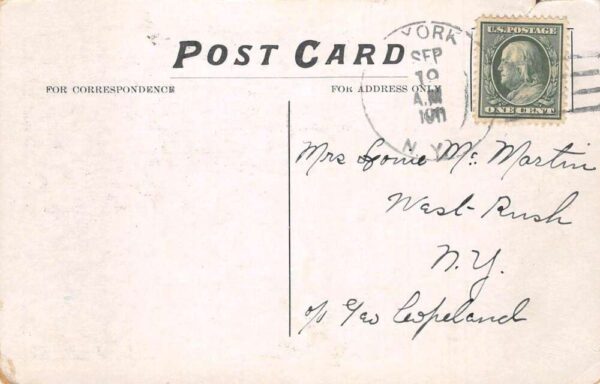 POST CARD
FOR CORRESPONDENCE
FOR ADDRESS ONLY
YORK
SEP
A.M
1911
N.Y.
U.S. POSTAGE
ONE CENT
Mrs Mc Martin
West Rush
N.Y.
c/o Geo Copeland